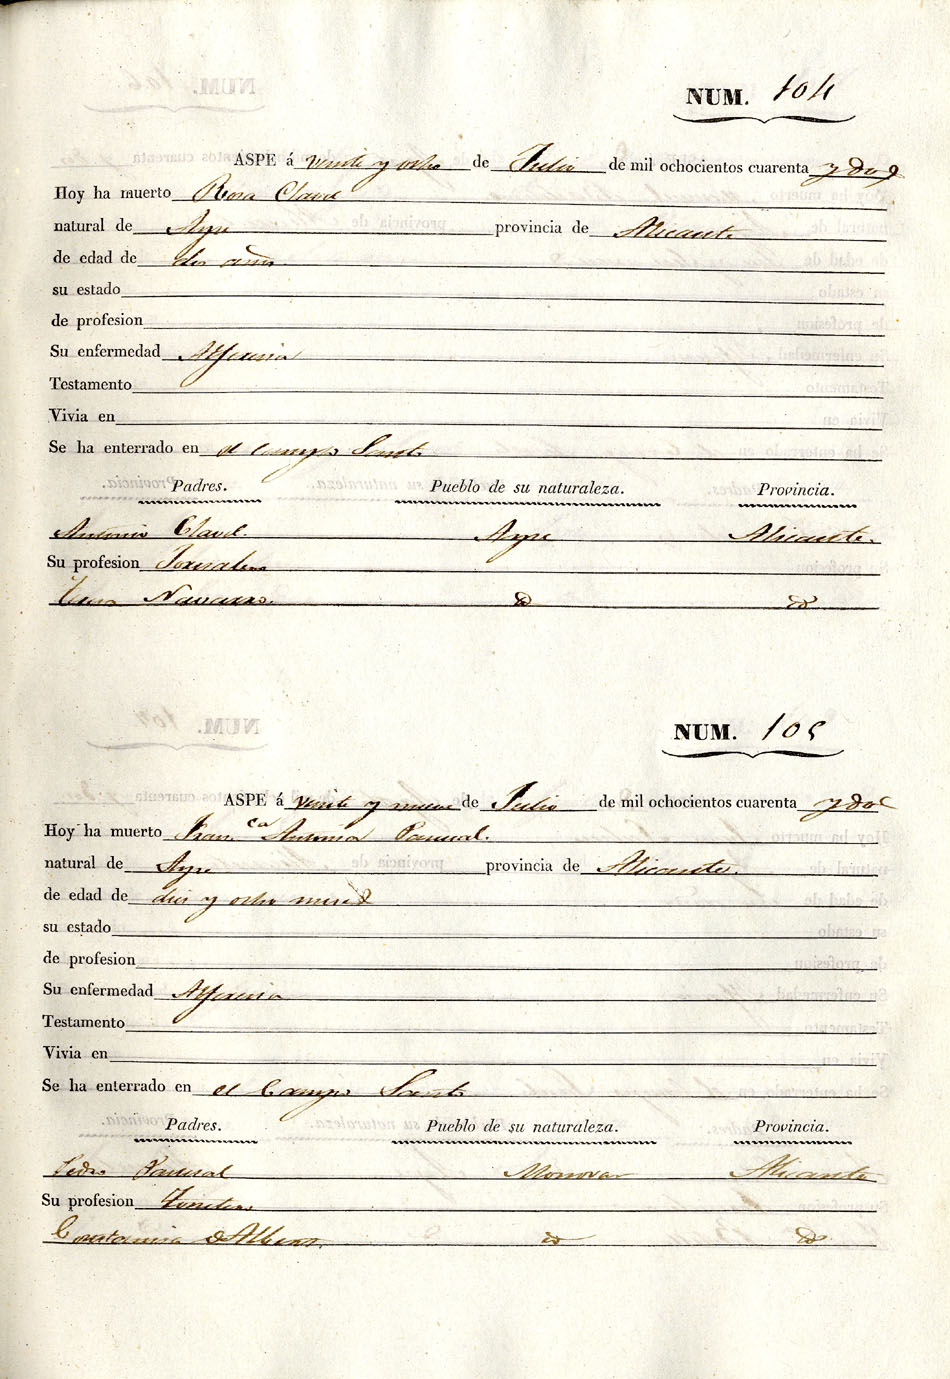 NUM. 104
ASPE á veinte y ocho de Julio de mil ochocientos cuarenta y dos
Hoy ha muerto Rosa Clavel
natural de Aspe provincia de Alicante
de edad de dos años.
su estado
de profesion
Su enfermedad Alferecia
Testamento
Vivia en
Se ha enterrado en el Campo Santo
Padres. Pueblo de su naturaleza. Provincia.
Antonio Clavel. Aspe Alicante.
Su profesion Jornalero
Navarro. id id
NUM. 105
ASPE á veinte y nueve de Julio de mil ochocientos cuarenta y dos
Hoy ha muerto Fran.ca Antonia Pascual.
natural de Aspe provincia de Alicante.
de edad de diez y ocho meses
su estado
de profesion
Su enfermedad Alferecia
Testamento
Vivia en
Se ha enterrado en el Campo Santo
Padres. Pueblo de su naturaleza. Provincia.
Pedro Pascual Monovar Alicante
Su profesion
Constancia id id